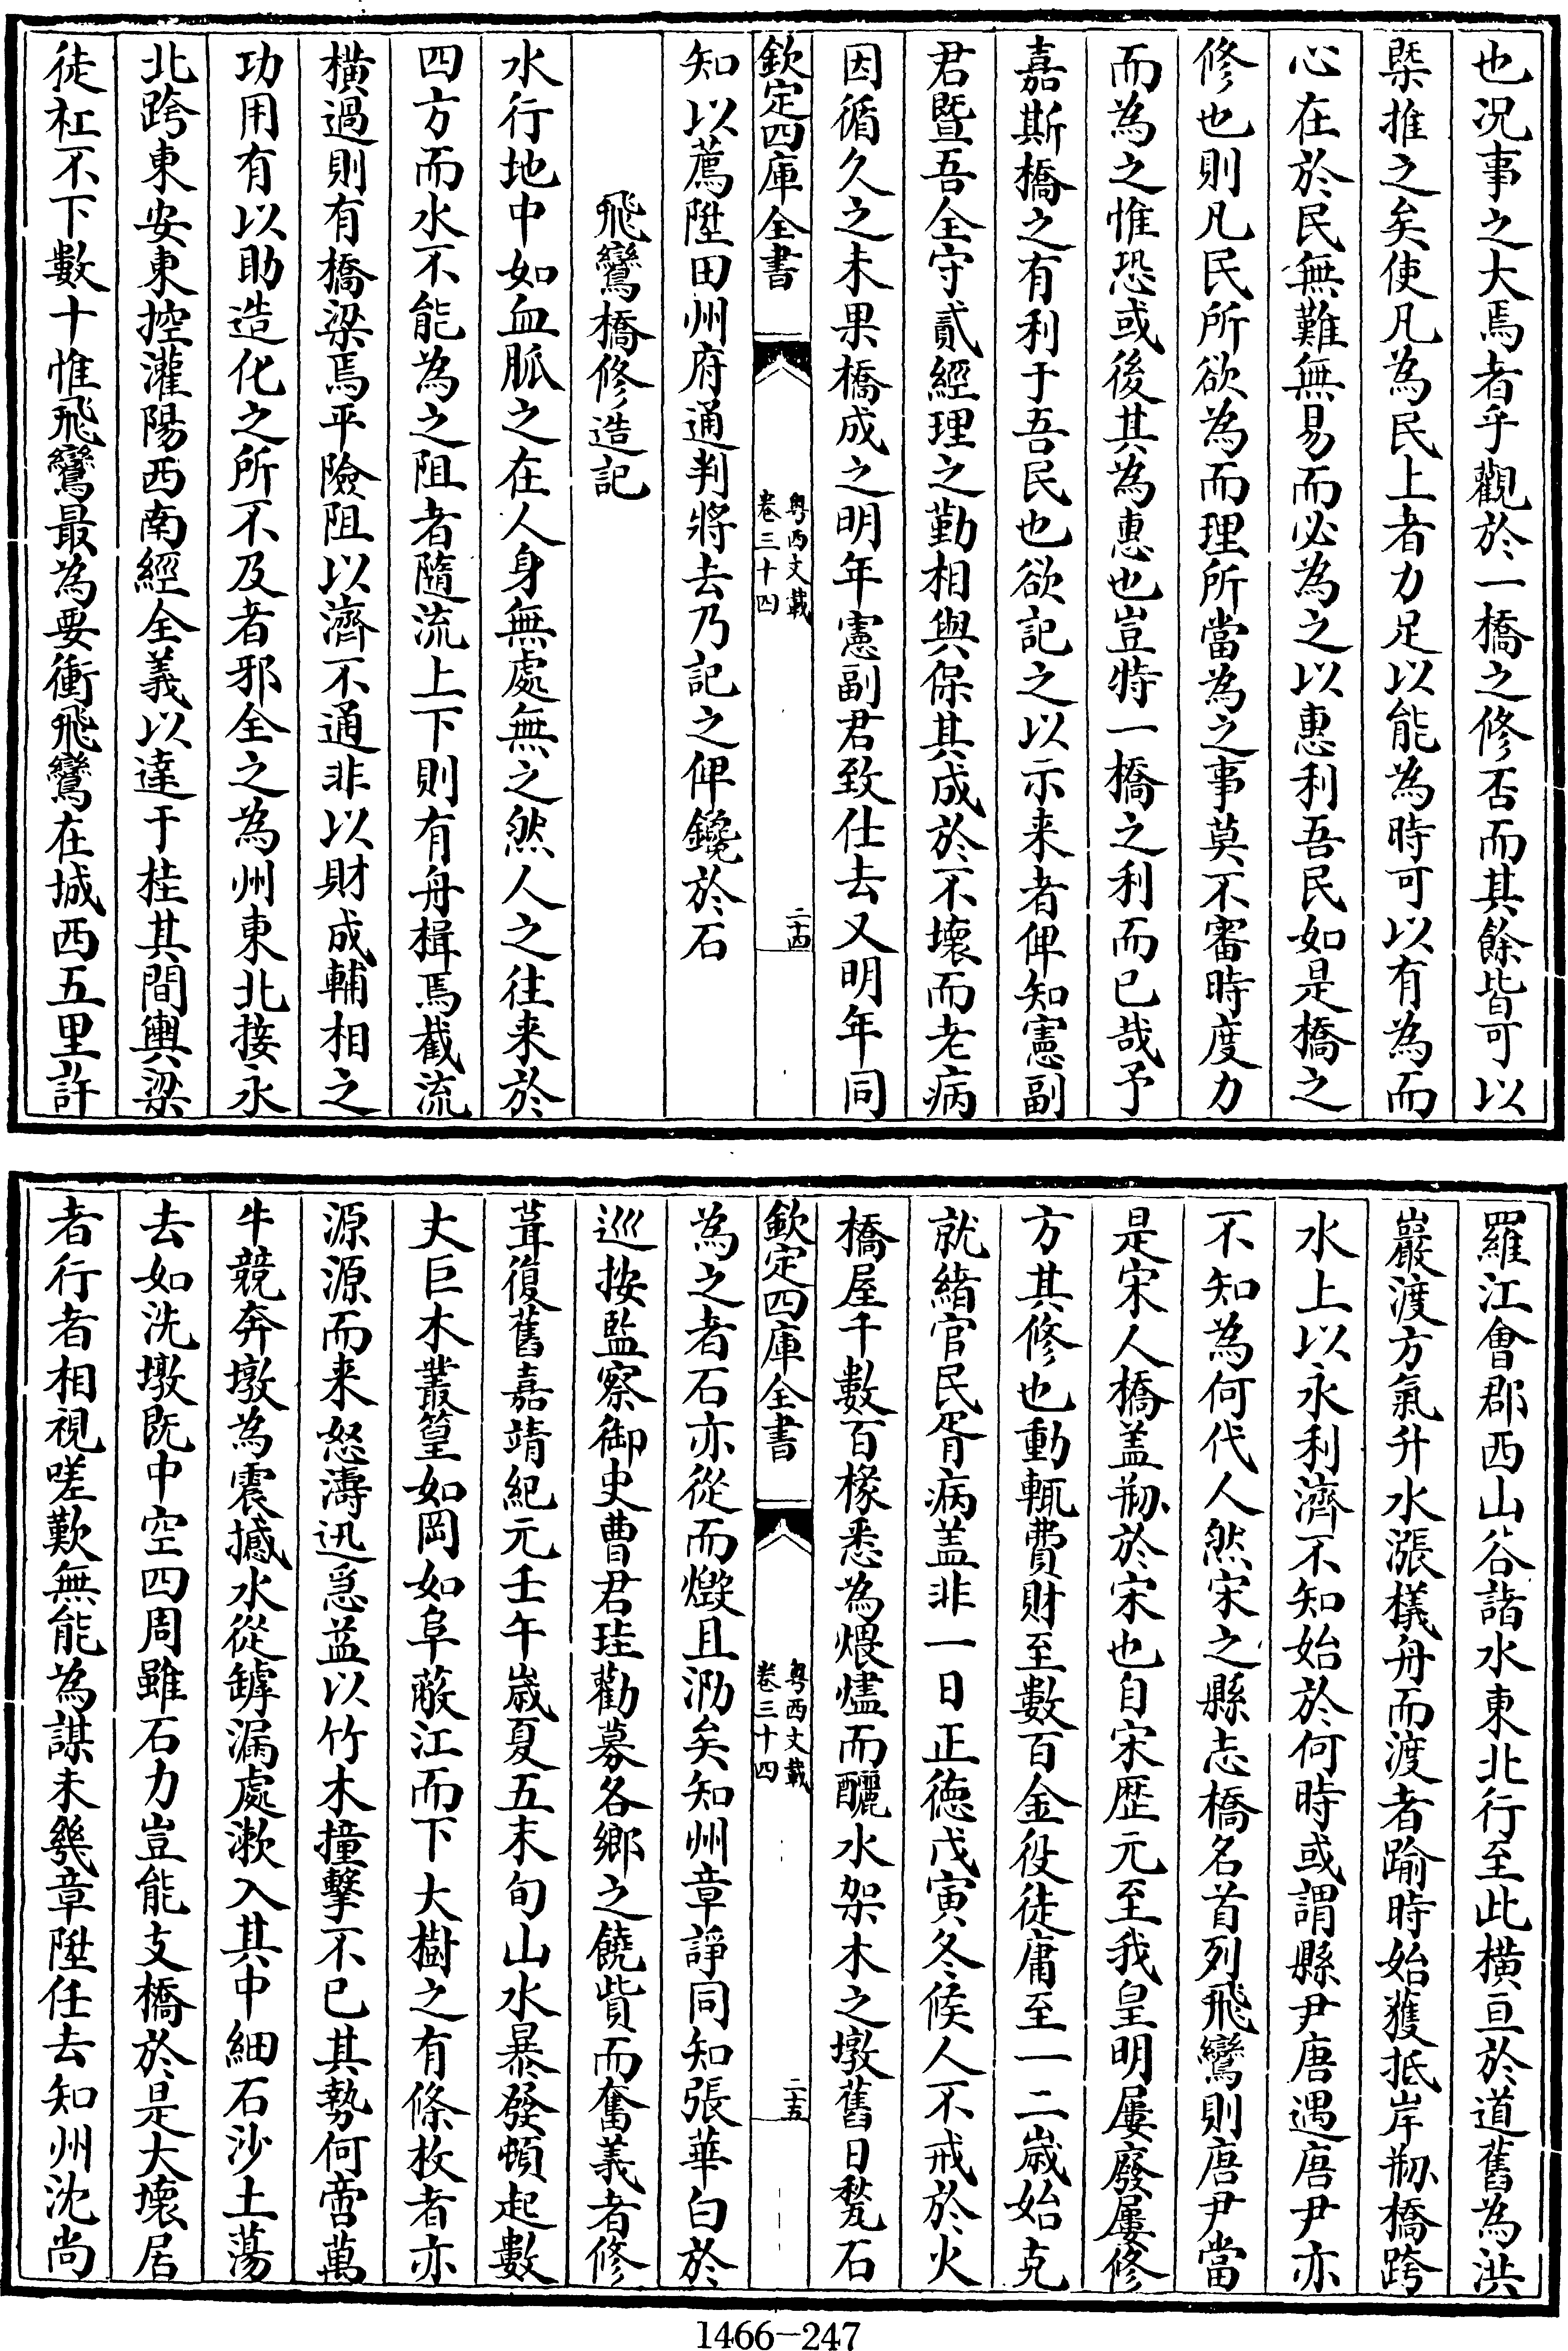 也况事之大焉者乎觀於一橋之修否而其餘皆可以
槩推之矣使凡為民上者力足以能為時可以有為而
心在於民無難無易而必為之以惠利吾民如是橋之
修也則凡民所欲為而理所當為之事莫不審時度力
而為之惟恐或後其為惠也豈特一橋之利而已哉予
嘉斯橋之有利于吾民也欲記之以示来者俾知憲副
君暨吾全守貳經理之勤相與保其成於不壊而老病
因循久之未果橋成之明年憲副君致仕去又明年同
欽定四庫全書
粤西文載
卷三十四
二十四
知以薦陞田州府通判將去乃記之俾鑱於石
飛鸞橋修造記
水行地中如血脈之在人身無處無之然人之往来於
四方而水不能為之阻者隨流上下則有舟楫焉截流
橫過則有橋梁焉平險阻以濟不通非以財成輔相之
功用有以助造化之所不及者邪全之為州東北接永
北跨東安東控灌陽西南經全義以達于桂其間輿梁
徒杠不下數十惟飛鸞最為要衝飛鸞在城西五里許
羅江會郡西山谷諸水東北行至此橫亘於道舊為洪
巖渡方氣升水漲檥舟而渡者踰時始獲抵岸剏橋跨
水上以永利濟不知始於何時或謂縣尹唐遇唐尹亦
不知為何代人然宋之縣志橋名首列飛鸞則唐尹當
是宋人橋盖剏於宋也自宋歴元至我皇明屢廢屢修
方其修也動輒費財至數百金役徒庸至一二歳始克
就緒官民胥病盖非一日正徳戊寅冬候人不戒於火
橋屋千數百椽悉為煨燼而釃水架木之墩舊日甃石
欽定四庫全書
粤西文載
卷三十四
二十五
為之者石亦從而燬且泐矣知州章諍同知張華白於
巡按監察御史曹君珪勸募各鄉之饒貲而奮義者修
葺復舊嘉靖紀元壬午嵗夏五末旬山水暴發頓起數
丈巨木叢篁如岡如阜蔽江而下大樹之有條枚者亦
源源而来怒濤迅急益以竹木撞擊不已其勢何啻萬
牛競奔墩為震撼水從罅漏處漱入其中細石沙土蕩
去如洗墩既中空四周雖石力豈能支橋於是大壊居
者行者相視嗟歎無能為謀未幾章陞任去知州沈尚
1466-247